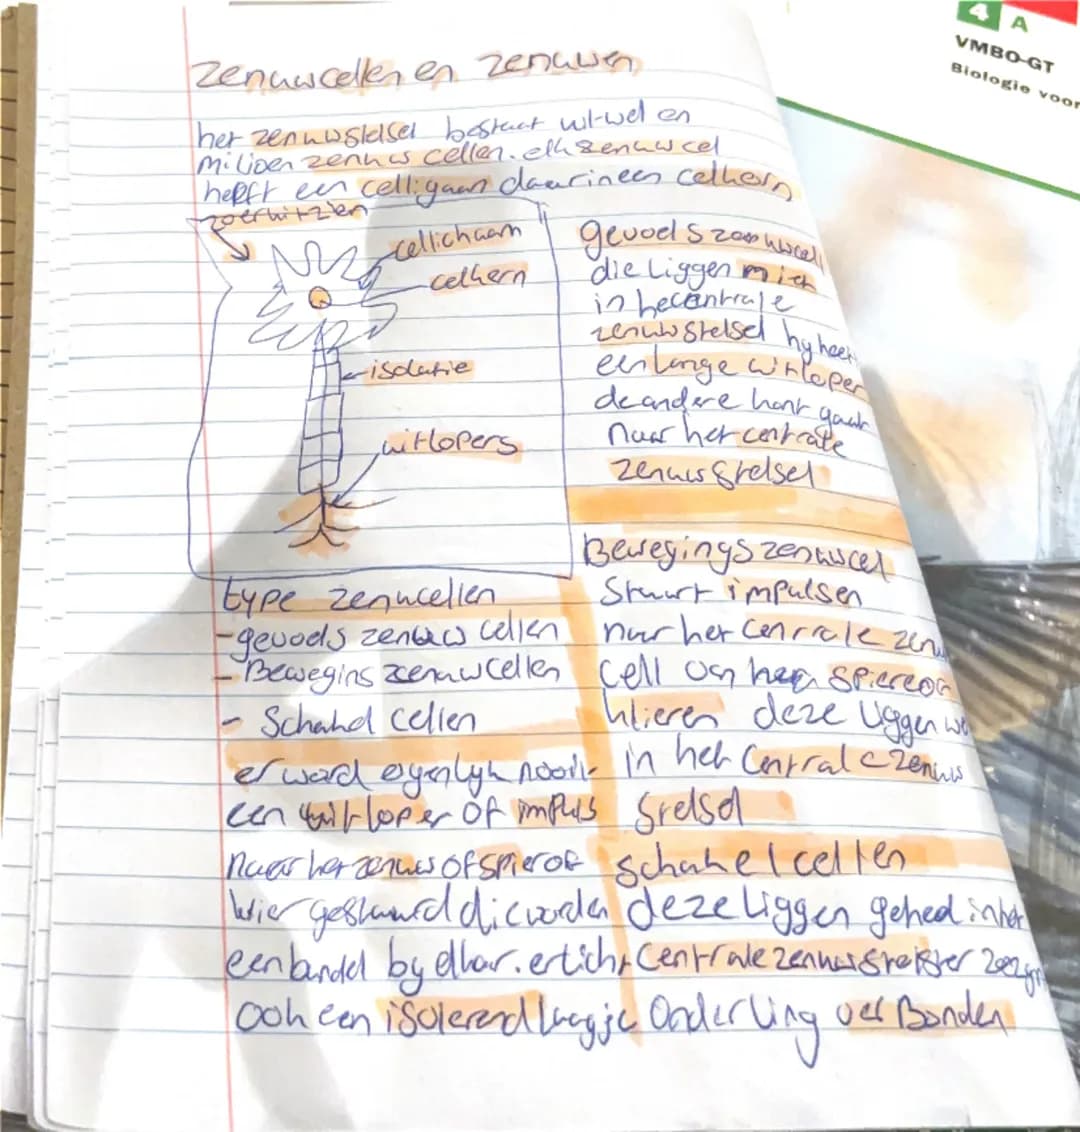 zenuwcellen en zenuwen
het zenuwstelsel bestaat uit wel en
milioen zenuw cellen. elk zenuwcel
heeft een celligaam daarin een celkern
zoerhitzien
cellichaam
celkern
isolatie
uitlopers
type zenucellen
-gevoels zenuw cellen
- Bewegins zenuwcellen
- Schakel cellen
er word eigenlyk nooit
een uitloper of impuls
naar het zenuw of spier of
klier gestuurd die worden
een bundel by elkar. er ticht
ook een isolerend laagje
gevoels zenuwcell
die liggen
in he centrale
zenuwstelsel hy heeft
een lange uitloper
de andere kant gaat
naar het centrale
zenuwstelsel
Bewegings zenuwcel
Stuurt impulsen
naar het centrale zenu
cell van spieren of
klieren deze liggen we
in het Centrale zenuw
Stelsel
schakelcellen
deze liggen geheel in het
Centrale zenuwstelster
onderling verBonden
4 A
VMBO-GT
Biologie voor